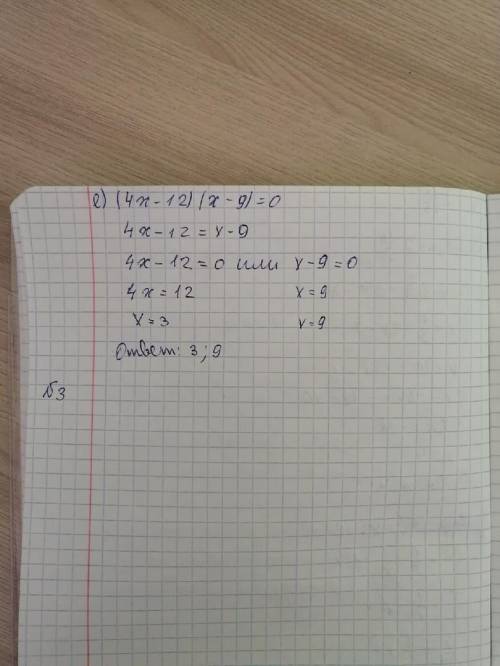 е) (4x-12)(x-9)=0
4x-12=x-9
4x-12=0 или x-9=0
4x=12 x=9
x=3 x=9
Ответ: 3; 9
№3